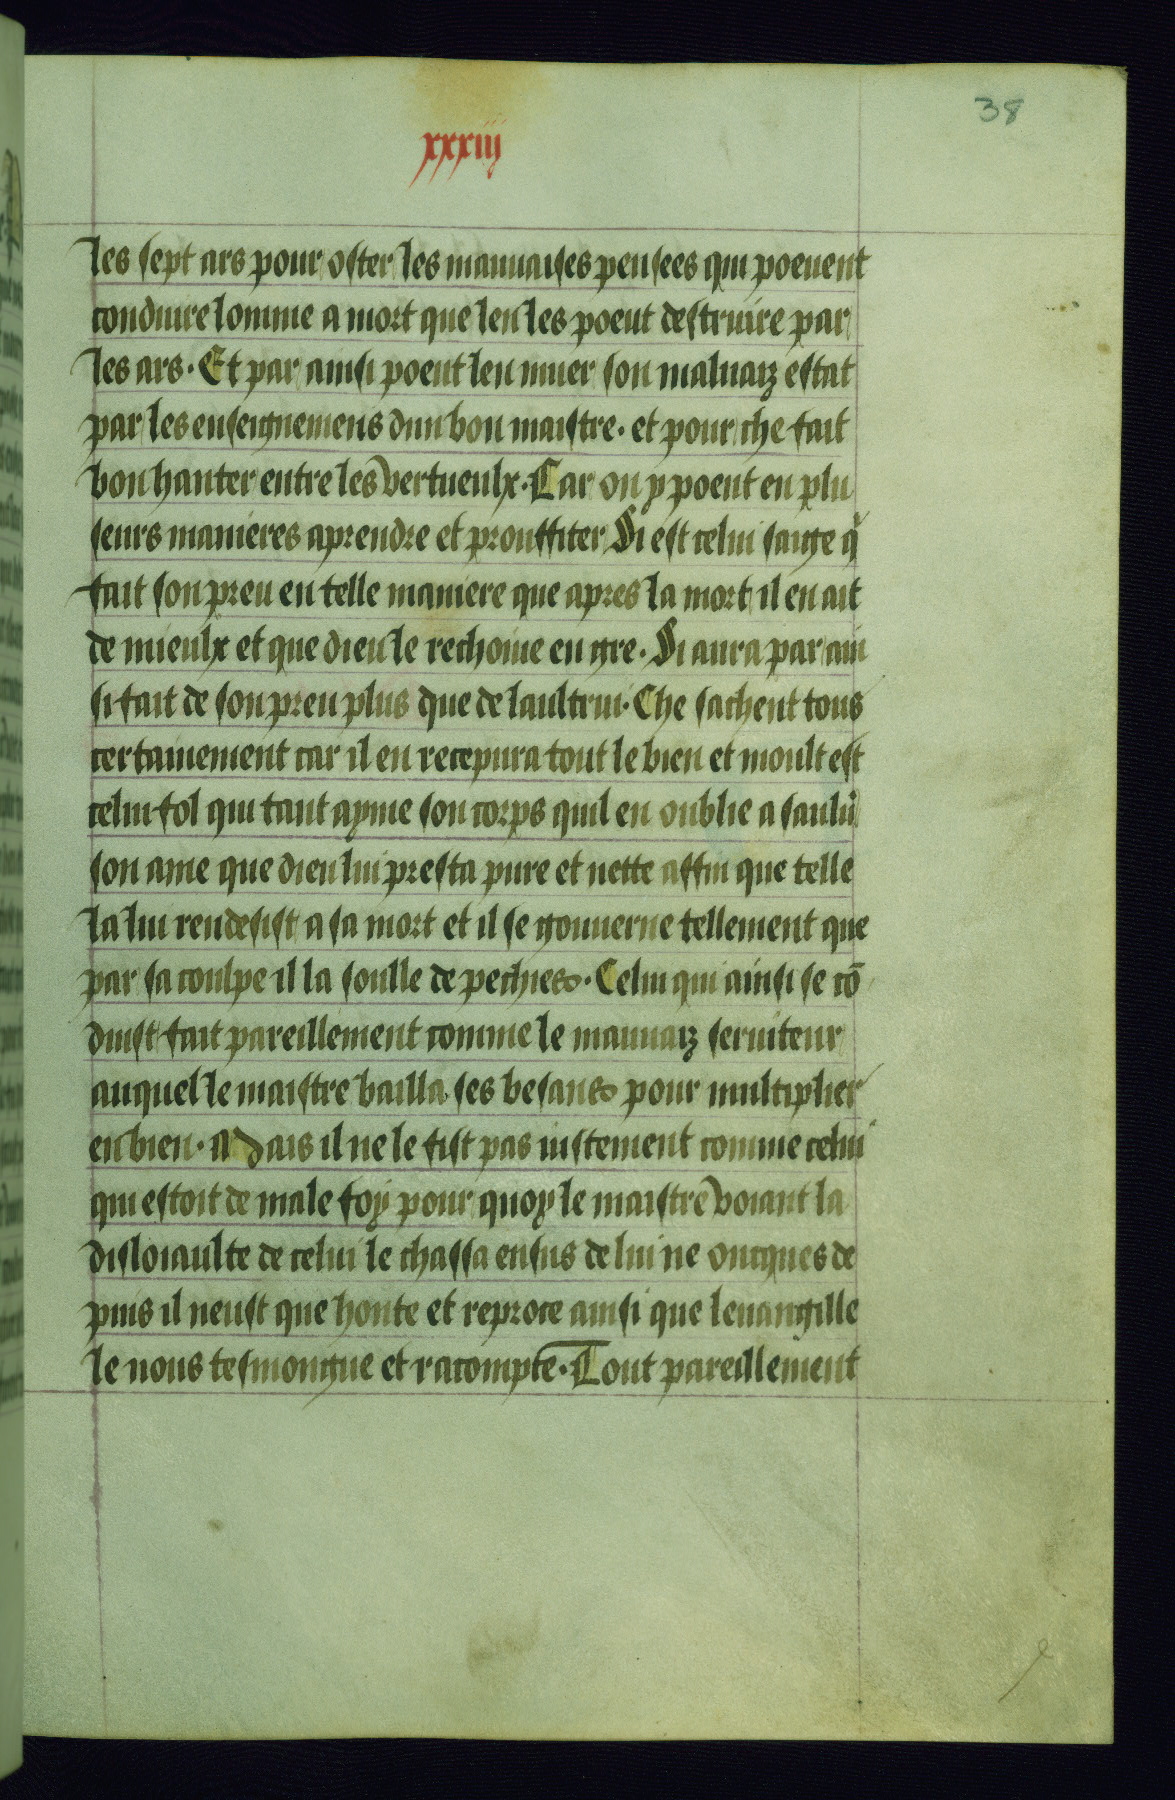 38
xxxiij
les sept ars pour oster les mauuaises pensees qui poeuent
conduire lomme a mort que len les poeut destruire par
les ars. Et par ainsi poeut len muer son maluaiz estat
par les enseignemens dun bon maistre. et pour che fait
bon hanter entre les vertueulx. Car on y poeut en plu
seurs manieres aprendre et prouffiter Si est celui saige q̄
fait son preu en telle maniere que apres la mort il en ait
de mieulx et que dieu le rechoiue en gre. Si aura par ain
si fait de son preu plus que de laultrui. Che sachent tous
certainement car il en recepura tout le bien et moult est
celui fol qui tant ayme son corps quil en oublie a saulū
son ame que dieu lui presta pure et nette affin que telle
la lui rendesist a sa mort et il se gouuerne tellement que
par sa coulpe il la soulle de pechies. Celui qui ainsi se cō
duist fait pareillement comme le mauuaiz seruiteur
auquel le maistre bailla ses besans pour multiplier
en bien. Mais il ne le fist pas iustement comme celui
qui estoit de male foy pour quoy le maistre voiant la
disloiaulte de celui le chassa ensus de lui ne oncques de
puis il neust que honte et reproce ainsi que leuangille
le nous tesmoingne et racompte. Tout pareillement